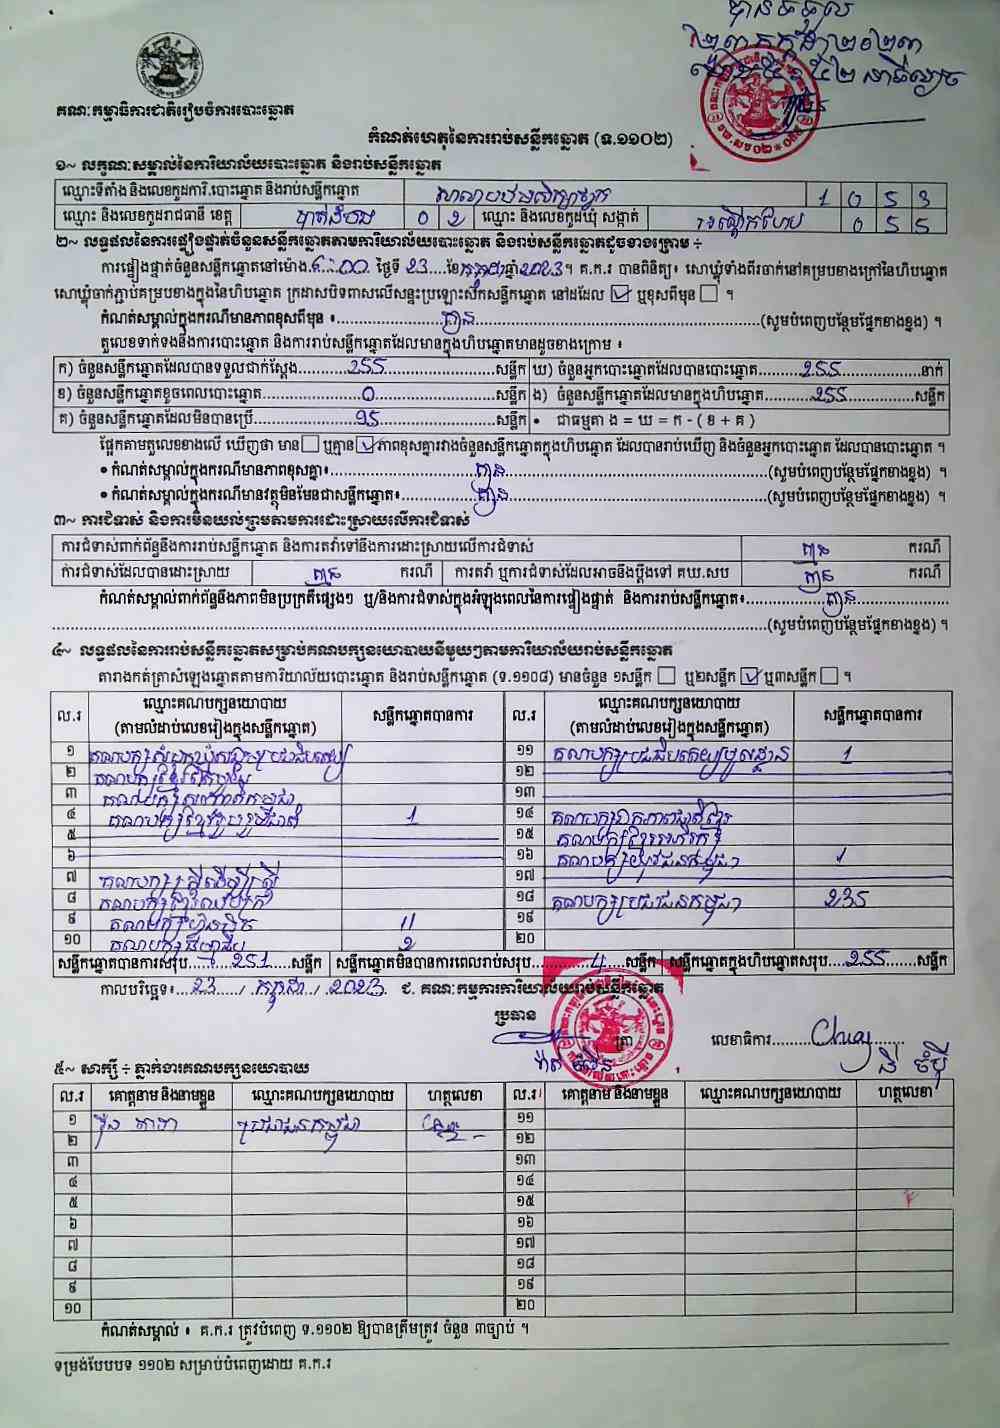 បានទទួល
២៣ កក្កដា ២០២៣
គណៈកម្មាធិការជាតិរៀបចំការបោះឆ្នោត
កំណត់ហេតុនៃការរាប់សន្លឹកឆ្នោត (ទ.១១០២)
១~ លក្ខណៈសម្គាល់នៃការិយាល័យបោះឆ្នោត និងរាប់សន្លឹកឆ្នោត
ឈ្មោះទីតាំង និងលេខកូដការិ.បោះឆ្នោត និងរាប់សន្លឹកឆ្នោត សាលាបឋមសិក្សា 1 0 5 3
ឈ្មោះ និងលេខកូដរាជធានី ខេត្ត បាត់ដំបង 0 2 ឈ្មោះ និងលេខកូដឃុំ សង្កាត់ 0 5 5
២~ លទ្ធផលនៃការផ្ទៀងផ្ទាត់ចំនួនសន្លឹកឆ្នោតតាមការិយាល័យបោះឆ្នោត និងរាប់សន្លឹកឆ្នោតដូចខាងក្រោម ÷
ការផ្ទៀងផ្ទាត់ចំនួនសន្លឹកឆ្នោតនៅម៉ោង ថ្ងៃទី 23 ខែ កក្កដា ឆ្នាំ 2023។ គ.ក.រ បានពិនិត្យ៖ សោឃ្លុំទាំងពីរចាក់នៅគម្របខាងក្រៅនៃហិបឆ្នោត
សោឃ្លុំចាក់ភ្ជាប់គម្របខាងក្នុងនៃហិបឆ្នោត ក្រដាសបិទពាសលើសន្ទះប្រឡោះសឹកសន្លឹកឆ្នោត នៅដដែល ☑ ឬខុសពីមុន ☐ ។
កំណត់សម្គាល់ក្នុងករណីមានភាពខុសពីមុន ៖ គ្មាន (សូមបំពេញបន្ថែមផ្នែកខាងខ្នង) ។
តួលេខទាក់ទងនឹងការបោះឆ្នោត និងការរាប់សន្លឹកឆ្នោតដែលមានក្នុងហិបឆ្នោតមានដូចខាងក្រោម ៖
ក) ចំនួនសន្លឹកឆ្នោតដែលបានទទួលជាក់ស្តែង សន្លឹក ឃ) ចំនួនអ្នកបោះឆ្នោតដែលបានបោះឆ្នោត 255 នាក់
ខ) ចំនួនសន្លឹកឆ្នោតខូចពេលបោះឆ្នោត 0 សន្លឹក ង) ចំនួនសន្លឹកឆ្នោតដែលមានក្នុងហិបឆ្នោត 255 សន្លឹក
គ) ចំនួនសន្លឹកឆ្នោតដែលមិនបានប្រើ 95 សន្លឹក • ជាធម្មតា ង = ឃ = ក - ( ខ + គ )
ផ្អែកតាមតួលេខខាងលើ ឃើញថា មាន ☐ ឬគ្មាន ☑ ភាពខុសគ្នារវាងចំនួនសន្លឹកឆ្នោតក្នុងហិបឆ្នោត ដែលបានរាប់ឃើញ និងចំនួនអ្នកបោះឆ្នោត ដែលបានបោះឆ្នោត ។
• កំណត់សម្គាល់ក្នុងករណីមានភាពខុសគ្នា៖ គ្មាន (សូមបំពេញបន្ថែមផ្នែកខាងខ្នង) ។
• កំណត់សម្គាល់ក្នុងករណីមានវត្ថុមិនមែនជាសន្លឹកឆ្នោត៖ គ្មាន (សូមបំពេញបន្ថែមផ្នែកខាងខ្នង) ។
៣~ ការជំទាស់ និងការមិនយល់ព្រមតាមការដោះស្រាយលើការជំទាស់
ការជំទាស់ពាក់ព័ន្ធនឹងការរាប់សន្លឹកឆ្នោត និងការតវ៉ាទៅនឹងការដោះស្រាយលើការជំទាស់ គ្មាន ករណី
ការជំទាស់ដែលបានដោះស្រាយ គ្មាន ករណី ការតវ៉ា ឬការជំទាស់ដែលអាចនឹងប្តឹងទៅ គឃ.សប គ្មាន ករណី
កំណត់សម្គាល់ពាក់ព័ន្ធនឹងភាពមិនប្រក្រតីផ្សេងៗ ឬ/និងការជំទាស់ក្នុងអំឡុងពេលនៃការផ្ទៀងផ្ទាត់ និងការរាប់សន្លឹកឆ្នោត៖ គ្មាន
(សូមបំពេញបន្ថែមផ្នែកខាងខ្នង) ។
៤~ លទ្ធផលនៃការរាប់សន្លឹកឆ្នោតសម្រាប់គណបក្សនយោបាយនីមួយៗតាមការិយាល័យរាប់សន្លឹកឆ្នោត
តារាងកត់ត្រាសំឡេងឆ្នោតតាមការិយាល័យបោះឆ្នោត និងរាប់សន្លឹកឆ្នោត (ទ.១១០៨) មានចំនួន ១សន្លឹក ☐ ឬ២សន្លឹក ☑ ឬ៣សន្លឹក ☐ ។
ល.រ ឈ្មោះគណបក្សនយោបាយ (តាមលំដាប់លេខរៀងក្នុងសន្លឹកឆ្នោត) សន្លឹកឆ្នោតបានការ ល.រ ឈ្មោះគណបក្សនយោបាយ (តាមលំដាប់លេខរៀងក្នុងសន្លឹកឆ្នោត) សន្លឹកឆ្នោតបានការ
១ គណបក្សសំបុកឃ្មុំសង្គមប្រជាធិបតេយ្យ ១១ គណបក្សប្រជាធិបតេយ្យមូលដ្ឋាន 1
២ គណបក្ស ១២
៣ គណបក្ស កម្ពុជា ១៣
៤ គណបក្សខ្មែររួបរួមជាតិ 1 ១៤ គណបក្សឯកភាពជាតិខ្មែរ
៥ ១៥ គណបក្សខ្មែរអភិរក្ស
៦ ១៦ គណបក្សយុវជនកម្ពុជា 1
៧ គណបក្សស្ត្រីដើម្បីស្ត្រី ១៧
៨ គណបក្ស ១៨ គណបក្សប្រជាជនកម្ពុជា 235
៩ គណបក្សហ្វ៊ុនស៊ិនប៉ិច 11 ១៩
១០ គណបក្សធម្មាធិបតេយ្យ 2 ២០
សន្លឹកឆ្នោតបានការសរុប 251 សន្លឹក សន្លឹកឆ្នោតមិនបានការពេលរាប់សរុប 4 សន្លឹក សន្លឹកឆ្នោតក្នុងហិបឆ្នោតសរុប 255 សន្លឹក
កាលបរិច្ឆេទ៖ 23 / កក្កដា / 2023 ជ. គណៈកម្មការការិយាល័យរាប់សន្លឹកឆ្នោត
ប្រធាន
ត្រា លេខាធិការ
៥~ សាក្សី ÷ ភ្នាក់ងារគណបក្សនយោបាយ
ល.រ គោត្តនាម និងនាមខ្លួន ឈ្មោះគណបក្សនយោបាយ ហត្ថលេខា ល.រ គោត្តនាម និងនាមខ្លួន ឈ្មោះគណបក្សនយោបាយ ហត្ថលេខា
១ ប្រជាជនកម្ពុជា ១១
២ ១២
៣ ១៣
៤ ១៤
៥ ១៥
៦ ១៦
៧ ១៧
៨ ១៨
៩ ១៩
១០ ២០
កំណត់សម្គាល់ ៖ គ.ក.រ ត្រូវបំពេញ ទ.១១០២ ឱ្យបានត្រឹមត្រូវ ចំនួន ៣ច្បាប់ ។
ទម្រង់បែបបទ ១១០២ សម្រាប់បំពេញដោយ គ.ក.រ